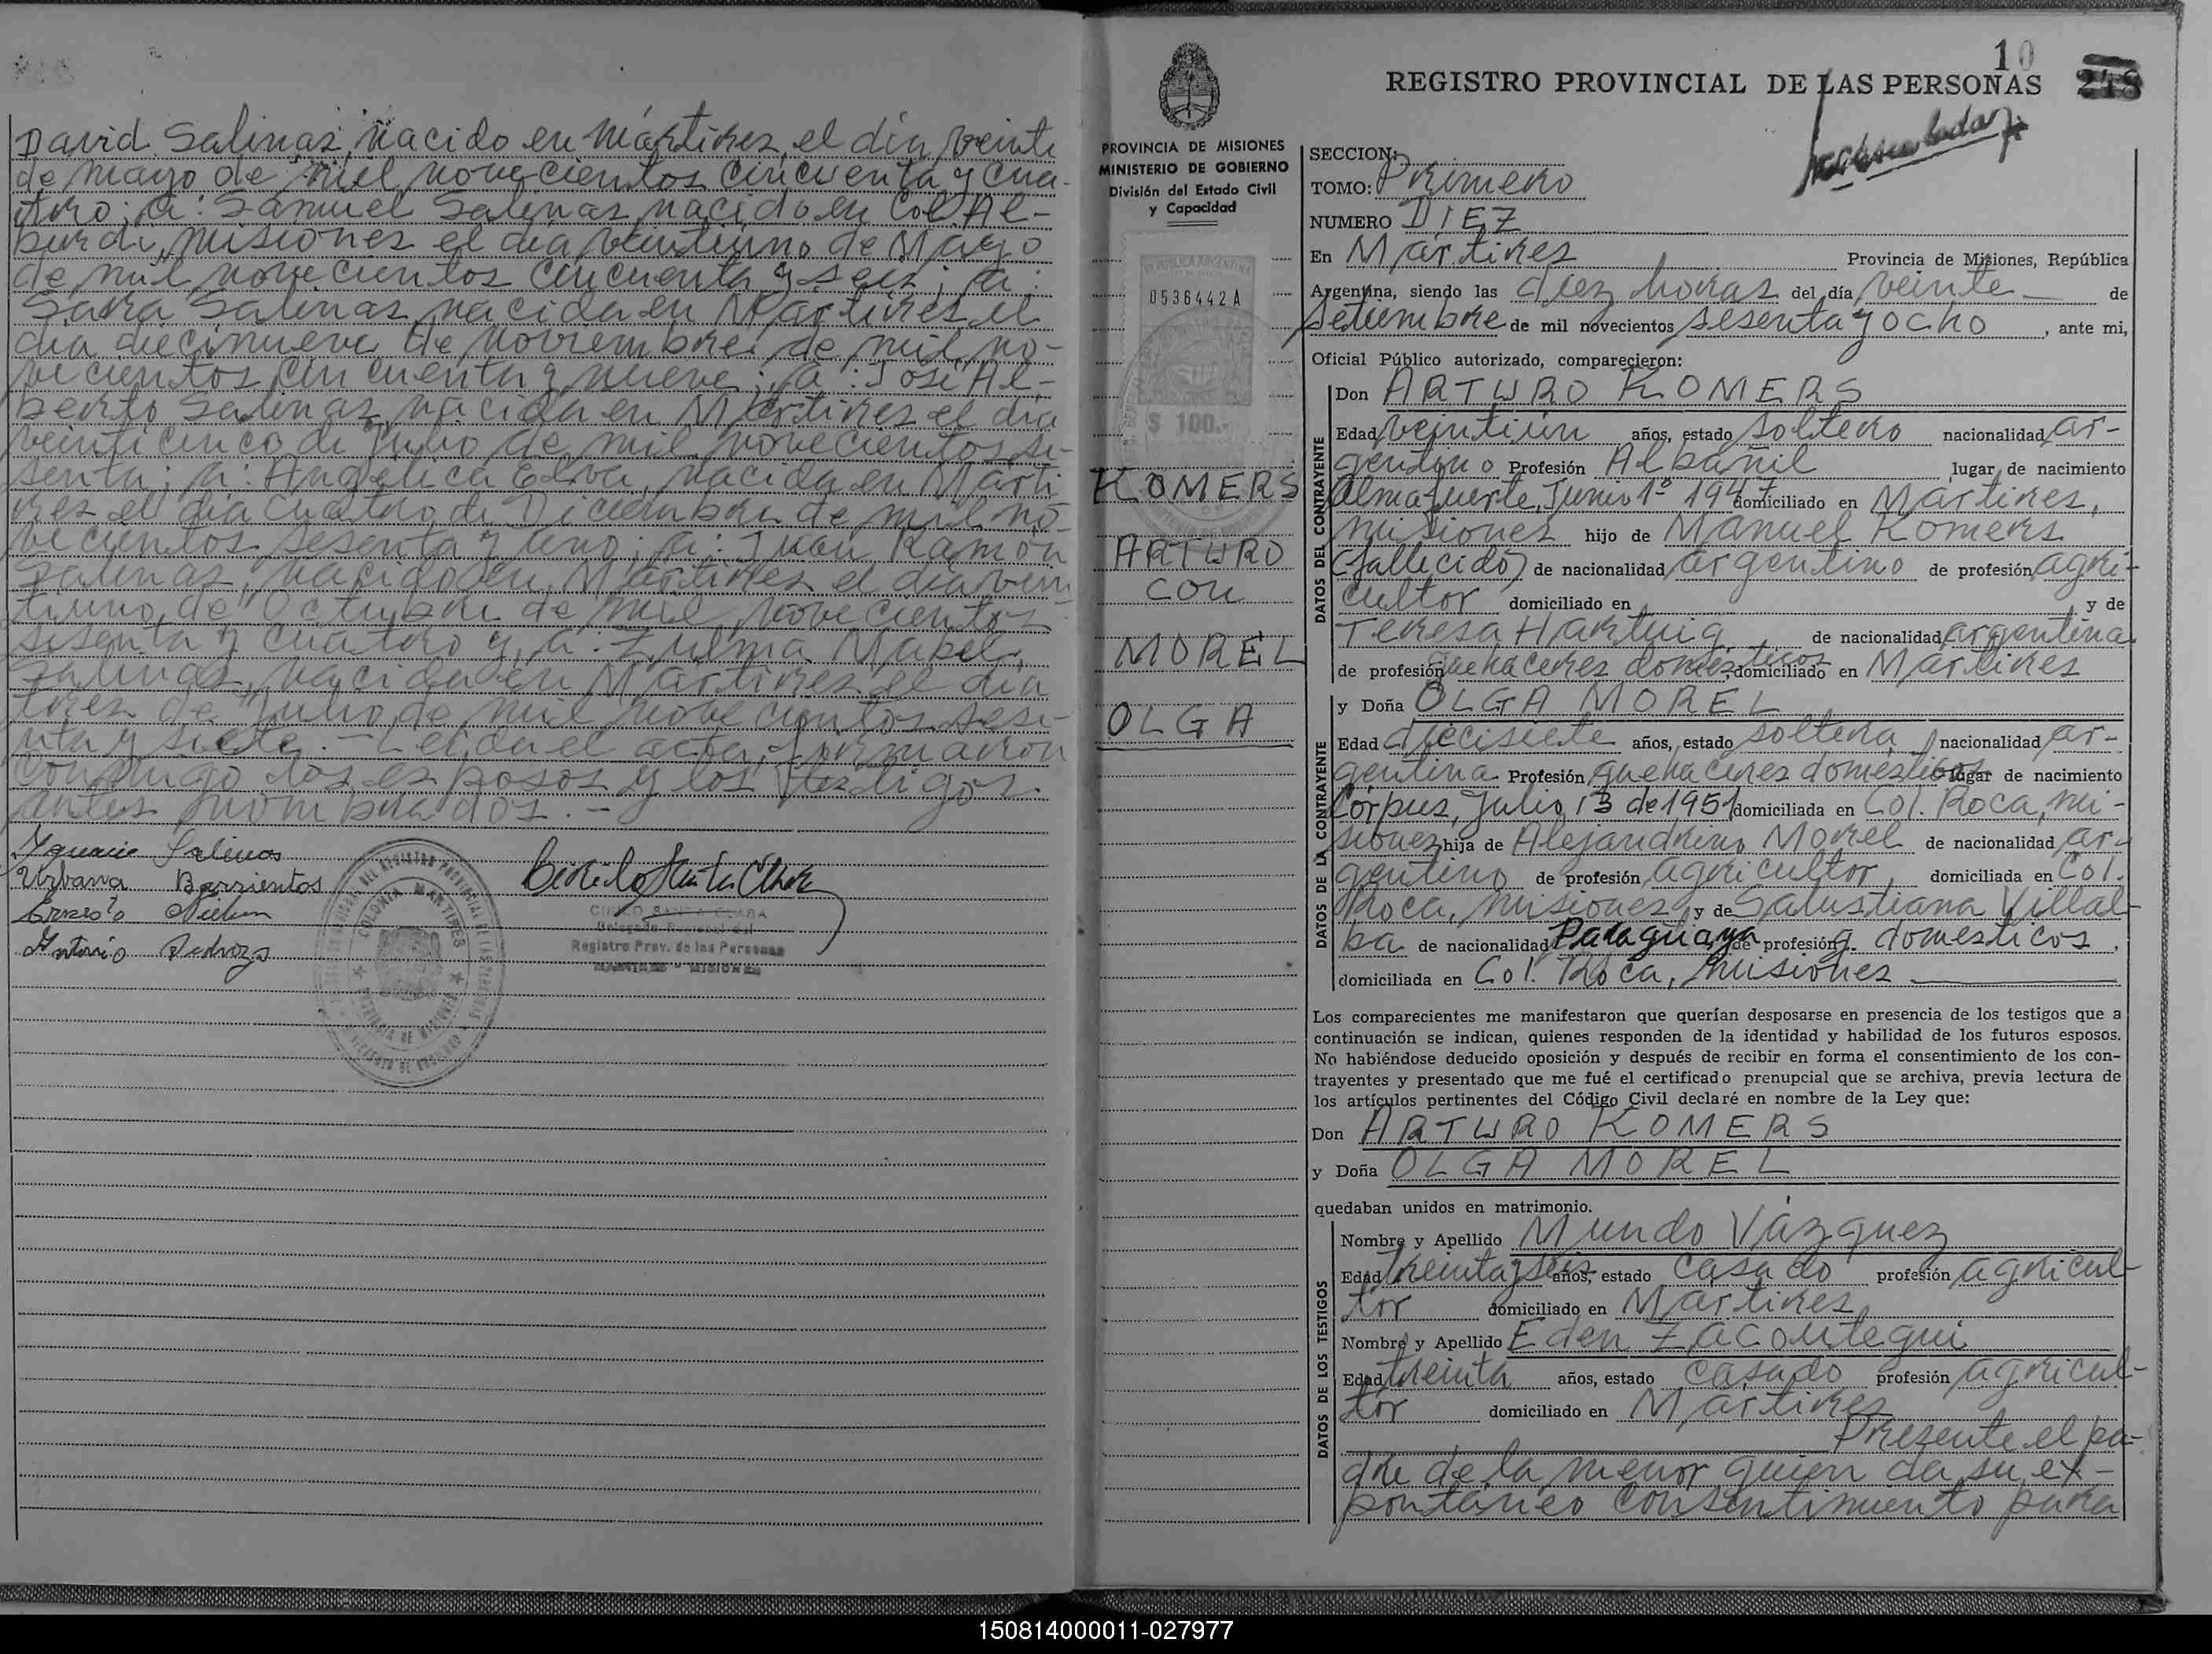 David Salinas, nacido en Mártires, el día veinte
de mayo de mil novecientos cincuenta y cua-
tro; a: Samuel Salinas nacido en Col. Al-
burdi, Misiones el día veintiuno de Mayo
de mil novecientos cincuenta y seis; a:
Sara Salinas nacida en Mártires el
día diecinueve de Noviembre de mil no-
vecientos cincuenta y nueve; a: José Al-
berto Salinas nacido en Mártires el día
veinticinco de Julio de mil novecientos se-
senta; a: Angélica Elva, nacida en Márti
res el día cuatro de Diciembre de mil no-
vecientos sesenta y uno; a: Juan Ramón
Salinas, nacido en Mártires el día vein
tiuno de Octubre de mil novecientos
sesenta y cuatro y, a: Zulma Mabel
Salinas, nacida en Mártires el día
tres de Julio de mil novecientos sese-
nta y siete.- Leída el acta, firmaron
conmigo los esposos y los testigos
antes nombrados.-
Ygnacio Salinas
Urbana Barrientos
Ernesto
Antonio Pedrozo
Cirilo Santa Clara
CIRILO SANTA CLARA
Registro Prov. de las Personas
MARTIRES - MISIONES
COLONIA MARTIRES
10
REGISTRO PROVINCIAL DE LAS PERSONAS
248
PROVINCIA DE MISIONES
MINISTERIO DE GOBIERNO
División del Estado Civil
y Capacidad
REPUBLICA ARGENTINA
0536442 A
$ 100.-
KOMERS
ARTURO
con
MOREL
OLGA
SECCION:
TOMO: Primero
NUMERO DIEZ
En Mártires Provincia de Misiones, República
Argentina, siendo las diez horas del día veinte de
Setiembre de mil novecientos sesenta y ocho, ante mi,
Oficial Público autorizado, comparecieron:
DATOS DEL CONTRAYENTE
Don ARTURO KOMERS
Edad veintiún años, estado soltero nacionalidad ar-
gentino Profesión Albañil lugar de nacimiento
Almafuerte, Junio 1º 1947 domiciliado en Mártires,
Misiones hijo de Manuel Komers
(fallecido) de nacionalidad argentino de profesión agri-
cultor domiciliado en y de
Teresa Hartwig, de nacionalidad argentina
de profesión quehaceres domésticos domiciliado en Mártires
DATOS DE LA CONTRAYENTE
y Doña OLGA MOREL
Edad diecisiete años, estado soltera nacionalidad ar-
gentina Profesión quehaceres domésticos lugar de nacimiento
Corpus, Julio 13 de 1951 domiciliada en Col. Roca, Mi-
siones hija de Alejandrino Morel de nacionalidad ar-
gentino de profesión agricultor, domiciliada en Col.
Roca, Misiones y de Salustiana Villal-
ba de nacionalidad Paraguaya de profesión q. domésticos,
domiciliada en Col. Roca, Misiones
Los comparecientes me manifestaron que querían desposarse en presencia de los testigos que a
continuación se indican, quienes responden de la identidad y habilidad de los futuros esposos.
No habiéndose deducido oposición y después de recibir en forma el consentimiento de los con-
trayentes y presentado que me fué el certificado prenupcial que se archiva, previa lectura de
los artículos pertinentes del Código Civil declaré en nombre de la Ley que:
Don ARTURO KOMERS
y Doña OLGA MOREL
quedaban unidos en matrimonio.
DATOS DE LOS TESTIGOS
Nombre y Apellido Mundo Vázquez
Edad treinta y seis años, estado casado profesión agricul-
tor domiciliado en Mártires
Nombre y Apellido Eden Zacoutegui
Edad treinta años, estado casado profesión agricul-
tor domiciliado en Mártires
Presente el pa-
dre de la menor quien da su ex-
pontáneo consentimiento para
150814000011-027977